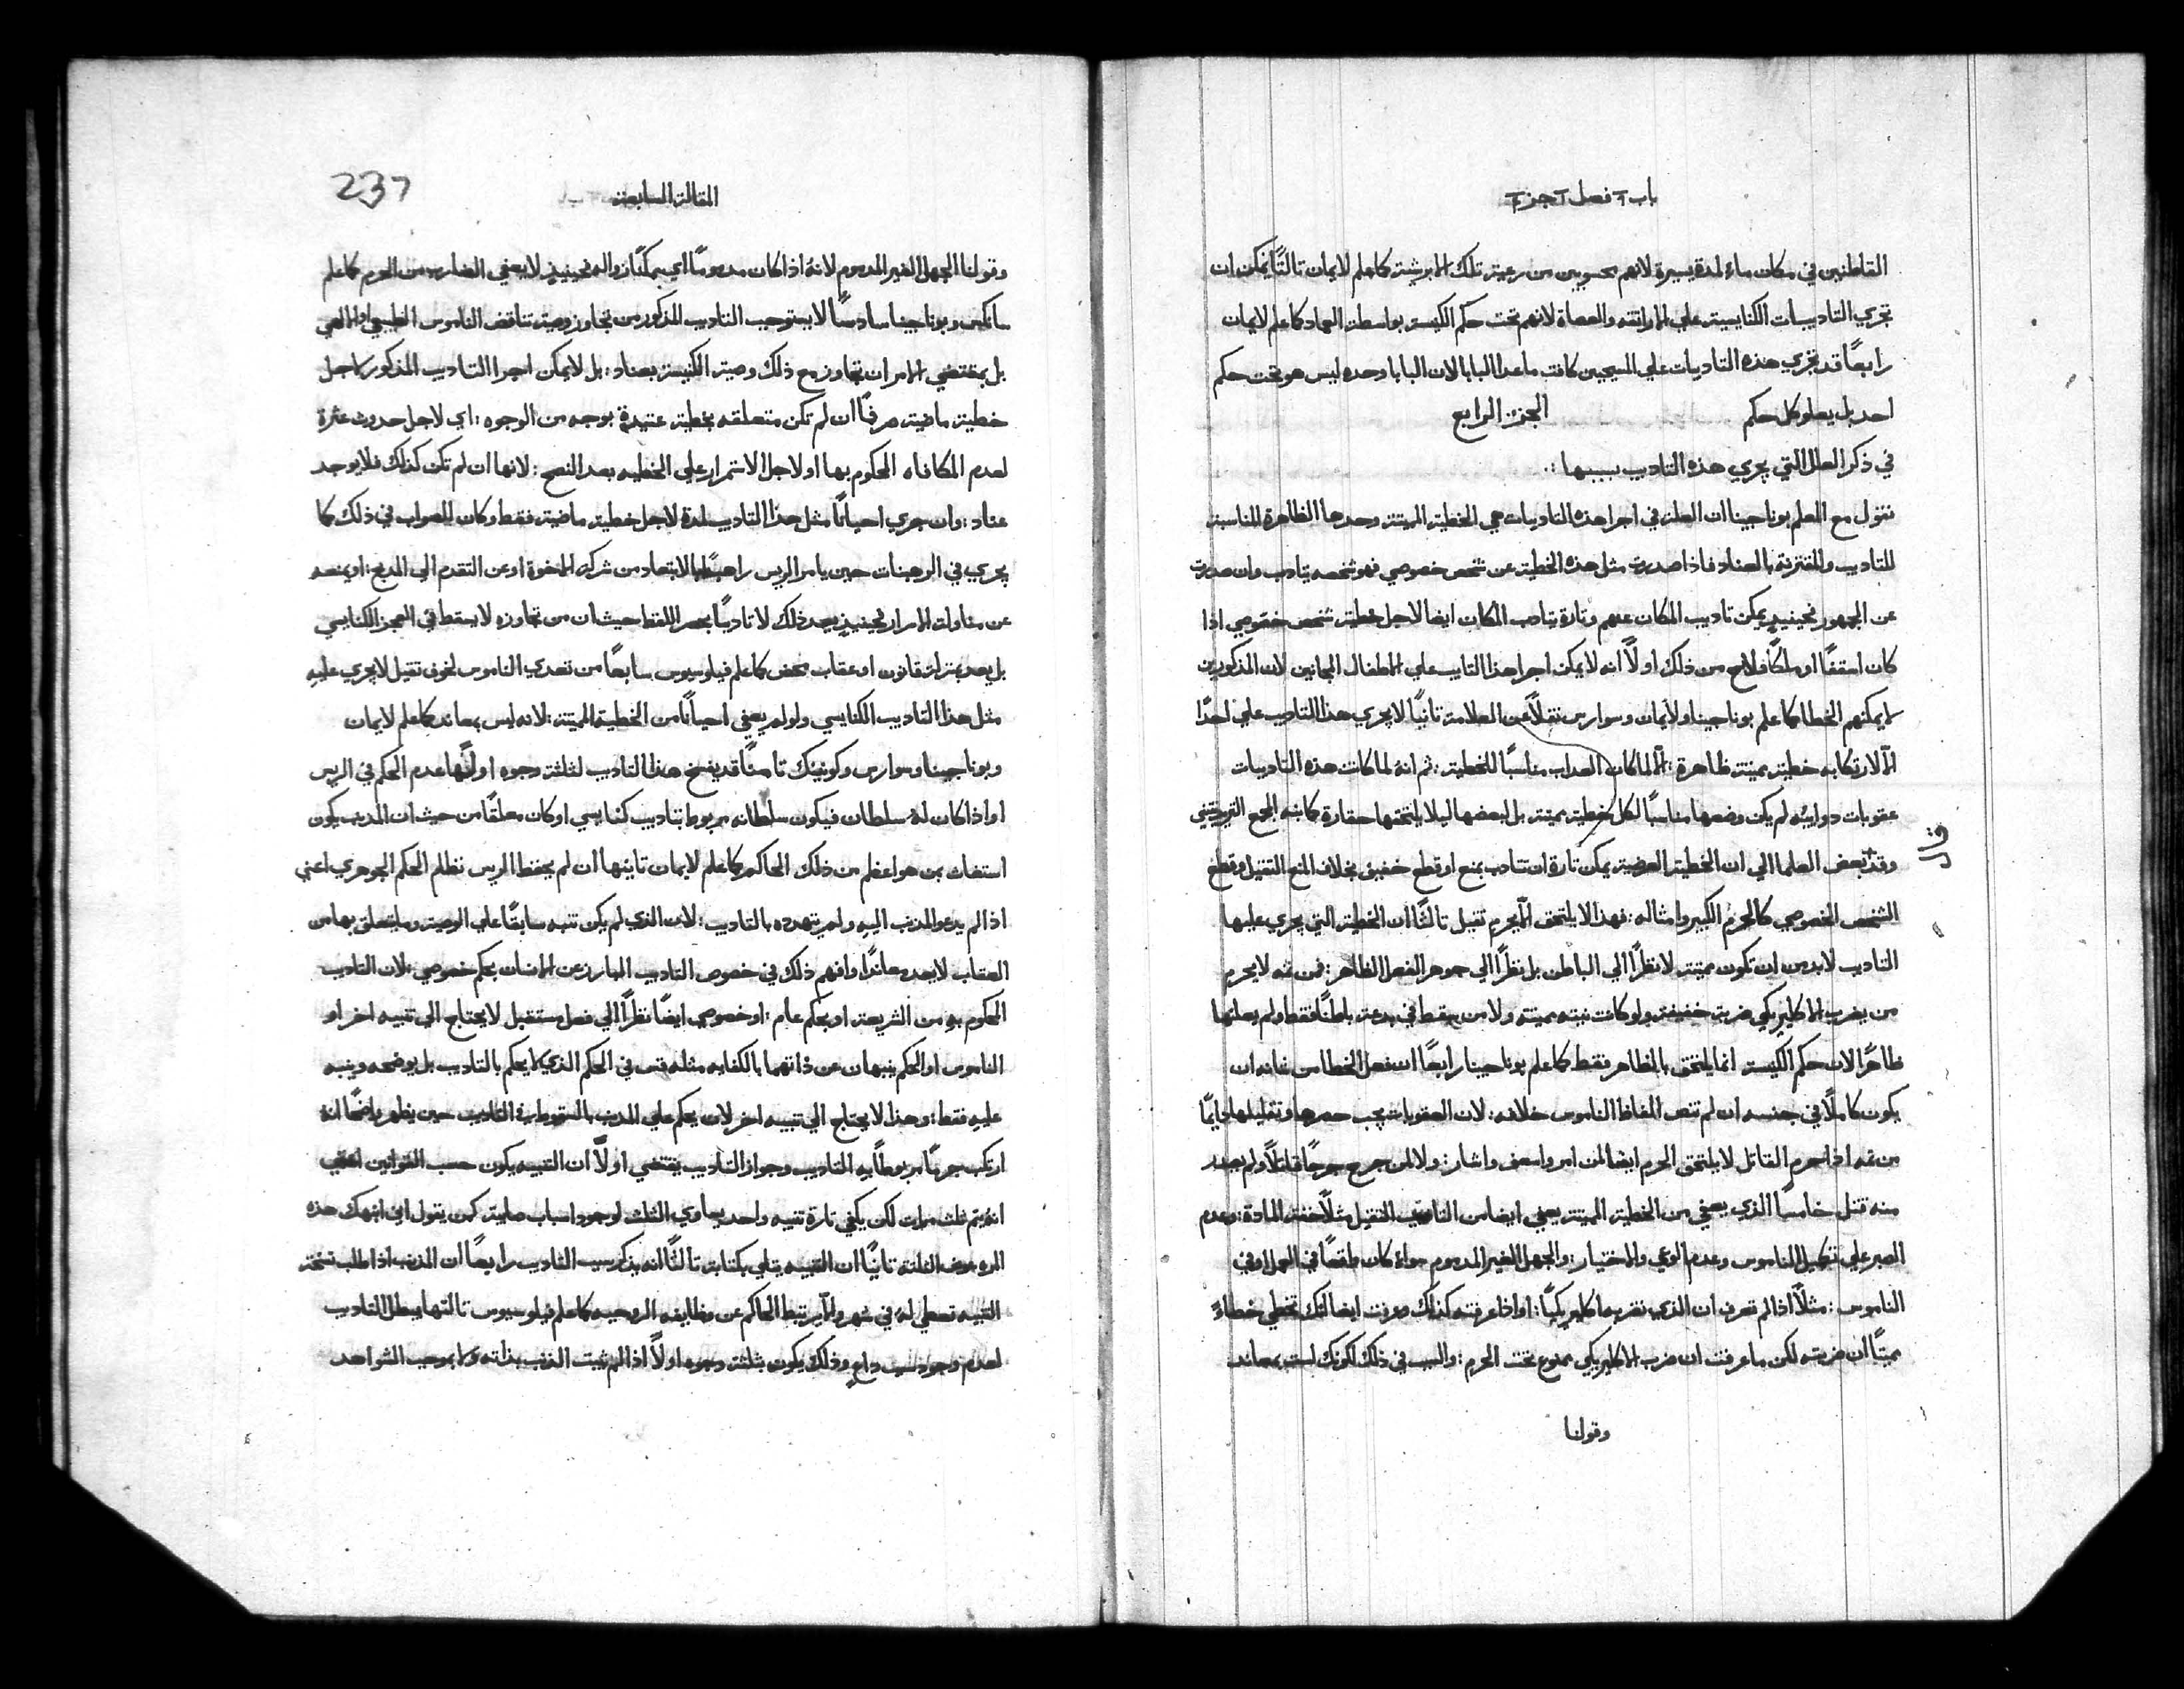 باب ٦ فصل ٢ جزء ٤
القاطنين في مكان ماء لمدة يسيرة لانهم محسوبين من رعية تلك الابرشية كما علم لايمان ثالثًا يمكن ان
تجري التاديبات الكنايسية علي الاراتقه والعصاة لانهم تحت حكم الكنيسة بواسطة العماد كما علم لايمان
رابعًا قد تجري هذه التاديبات علي المسيحيين كافة ما عدا البابا لان البابا وحده ليس هو تحت حكم
احد بل يعلو كل حكم الجزء الرابع
في ذكر العلل التي يجري هذه التاديب بسببها :.
نقول مع المعلم بوناجينا ان العلة في اجرا هذه التاديبات هي الخطية المميتة وحدها الظاهرة المناسبة
للتاديب والمقترنة بالعناد فاذا صدرت مثل هذه الخطية عن شخص خصوصي فهو شخصه يتادب وان صدرت
عن الجمهور فحينيذٍ يمكن تاديب المكان عنهم وتارة يتادب المكان ايضا لاجل خطية شخص خصوصي اذا
كان اسقفًا او ملكًا فلاح من ذلك اولًا انه لا يمكن اجرا هذا التاديب علي الاطفال المجانين لان المذكورين
لا يمكنهم الخطا كما علم بوناجينا ولايمان وسوارس نقلًا عن العلامة ثانيًا لا يجري هذا التاديب علي احدًا
الّا لارتكابه خطية مميتة ظاهرة : الّا لما كان العداب مناسبًا للخطية : ثم انه لما كانت هذه التاديبات
عقوبات دواييه لم يكن وضعها مناسبًا لكل خطية مميتة بل لبعضها ليلا يلتحقها حقارة كما نبه المجمع التريدنتيني
وقد بعض العلما الي ان الخطية العرضية يمكن تارة ان تتادب بمنع او قطع خفيف بخلاف المنع الثقيل او قطع
الشخص الخصوصي كالحرم الكبير وامثاله : فهذا لا يلتحق الّا بجرم ثقيل ثالثًا ان الخطية التي يجري عليها
التاديب لابد من ان تكون مميتة لا نظرًا الي الباطن بل نظرًا الي جوهر الفعل الظاهر : فمن ثم لا يحرم
من يضرب الاكليريكي ضربة خفيفة ولو كانت نيته مميته ولا من يسقط في بدعة باطنًا فقط ولم يعلنها
ظاهرًا لان حكم الكنيسة انما يلتحق بالظاهر فقط كما علم بوناجينا رابعًا ان فعل الخطا من شانه ان
يكون كاملًا في جنسه ان لم تنص الفاظ الناموس خلافه : لان العقوبات يجب حصرها وتقليلها دايمًا
من ثم اذا حرم القاتل لا يلتحق الحرم ايضا لمن امر واسعف واشار : ولا لمن جرح جرحًا قاتلًا ولم يصدر
منه قتل خامسًا الذي يعفي من الخطية المميتة يعفي ايضا من التاديب الثقيل مثلًا خفة المادة : وعدم
الصبر علي تكميل الناموس وعدم الوعي والاختيار : والجهل الغير المدموم سواءً كان واقعًا في العمل او في
الناموس : مثلًا اذا لم تعرف ان الذي تضربه اكليريكيًا : او اذا عرفته كذلك وعرفت ايضا انك تخطي خطاءً
مميتًا ان ضربته لكن ما عرفت ان ضرب الاكليريكي ممنوع تحت الحرم : والسبب في ذلك لكونك لست بمعاند
وقولنا
المقالة السابعة
237
وقولنا الجهل الغير المدموم لانهُ اذا كان مدمومًا اي ممكنًا زواله فحينيذٍ لا يعفي الضارب من الحرم كما علم
سانكس وبوناجينا سادسًا لا يستوجب التاديب المذكور من تجاوز وصية تناقض الناموس الطبيعي او الالهي
بل يقتضي الامر ان يتجاوز مع ذلك وصية الكنيسة بعناد : بل لا يمكن اجرا التاديب المذكور لاجل
خطية ماضية صرفًا ان لم تكن متعلقه بخطية عتيدة بوجه من الوجوه : اي لاجل حدوث عثرة
لعدم المكافاه المحكوم بها او لاجل الاستمرار علي الخطيه بعد النصح : لانها ان لم تكن كذلك فلا يوجد
عناد : وان جري احيانًا مثل هذا التاديب لمدة لاجل خطية ماضية فقط وكان للصواب في ذلك كما
يجري في الرهبنات حين يامر الريس راهبًا بالابتعاد من شركة الاخوة او عن التقدم الي المذبح : او يمنعه
عن مناولت الاسرار فحينيذٍ يعد ذلك لا تاديبًا بحصر اللفظ حيث ان من تجاوزه لا يسقط في العجز الكنايسي
بل يعد بمنزلة قانون او عقاب محض كما علم فيلوسيوس سابعًا من تعدي الناموس لخوف ثقيل لا يجري عليهِ
مثل هذا التاديب الكنايسي ولو لم يعفي احيانًا من الخطية المميتة : لانه ليس بمعاند كما علم لايمان
وبوناجينا وسوارس وكونينك ثامنًا قد يفسخ هذا التاديب لثلثة وجوه اولها عدم الحكم في الريس
او اذا كان لهُ سلطان فيكون سلطانه مربوط بتاديب كنايسي او كان معلقًا من حيث ان المدنب يكون
استغاث بمن هو اعظم من ذلك الحاكم كما علم لايمان ثانيها ان لم يحفظ الريس نظام الحكم الجوهري اعني
اذا لم يدعو المدنب اليهِ ولم يتهدده بالتاديب : لان الذي لم يكن تنبه سابقًا علي الوصية وما يتعلق بها من
العقاب لا يعد معاندًا وافهم ذلك في خصوص التاديب البارز عن الانسان بحكم خصوصي : لان التاديب
المحكوم بهِ من الشريعة او بحكم عام : او خصوصي ايضًا نظرًا الي فعل مستقبل لا يحتاج الي تنبيه اخر او
الناموس او الحكم ينبهان عن ذاتهما بالكفايه مثله قس في الحكم الذي لا يحكم بالتاديب بل يوضحه وينبه
عليهِ فقط : وهذا لا يحتاج الي تنبيه اخر لان يحكم علي المدنب بالسقوط في التاديب حين يظهر واضحًا انهُ
ارتكب جرمًا مربوطًا بهِ التاديب وجواز التاديب يقتضي اولًا ان التنبيه يكون حسب القوانين اعني
انهُ يتم ثلث مرات لكن يكفي تارة تنبيه واحد يساوي الثلث لوجود اسباب صوابية كمن يقول اني انبهك هذه
المره عوض الثلثه ثانيًا ان التنبيه يتلي بكتابة ثالثًا انه يذكر سبب التاديب رابعًا ان المدنب اذا طلب نسخة
التنبيه تعطي لهُ في شهر والّا يرتبط الحاكم عن وظايفه الروحيه كما علم فيلوسيوس ثالثها يبطل التاديب
لعدم وجود سبب داعٍ وذلك يكون بثلثة وجوه اولًا اذا لم يثبت الدنب بذاته ولا بموجب الشواهد